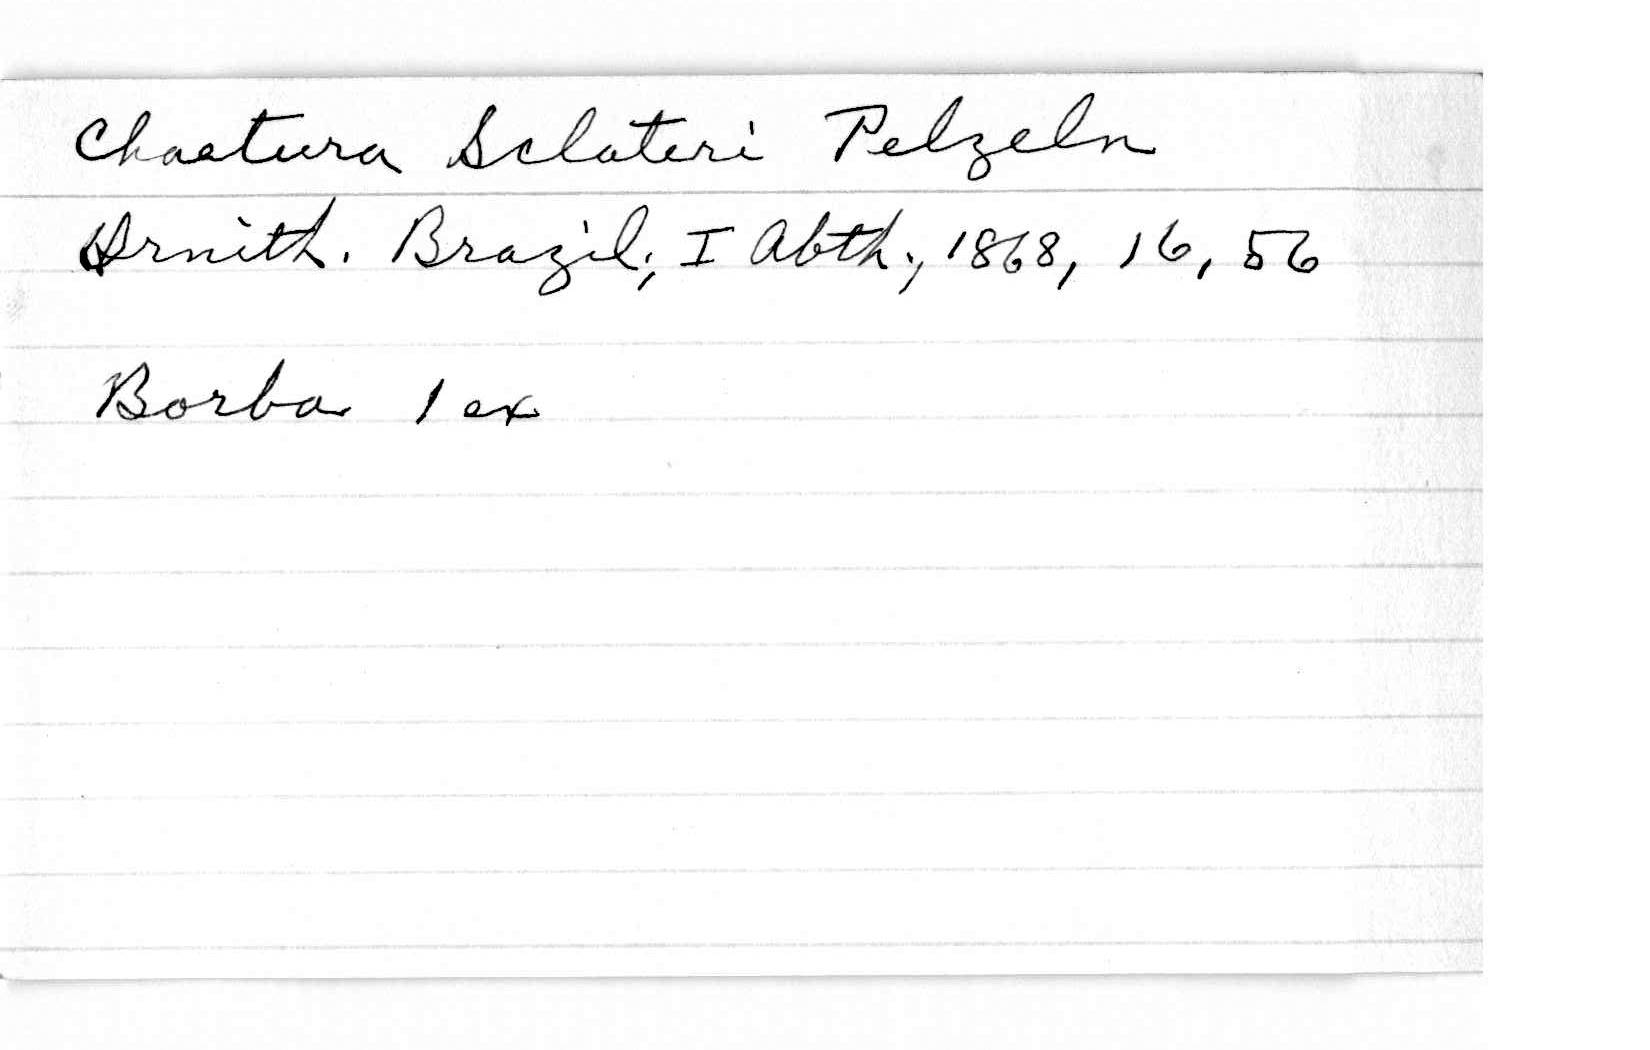 Chaetura Sclateri Pelzeln
Ornith. Brazil, I Abth., 1868, 16, 56
Borba 1 ex